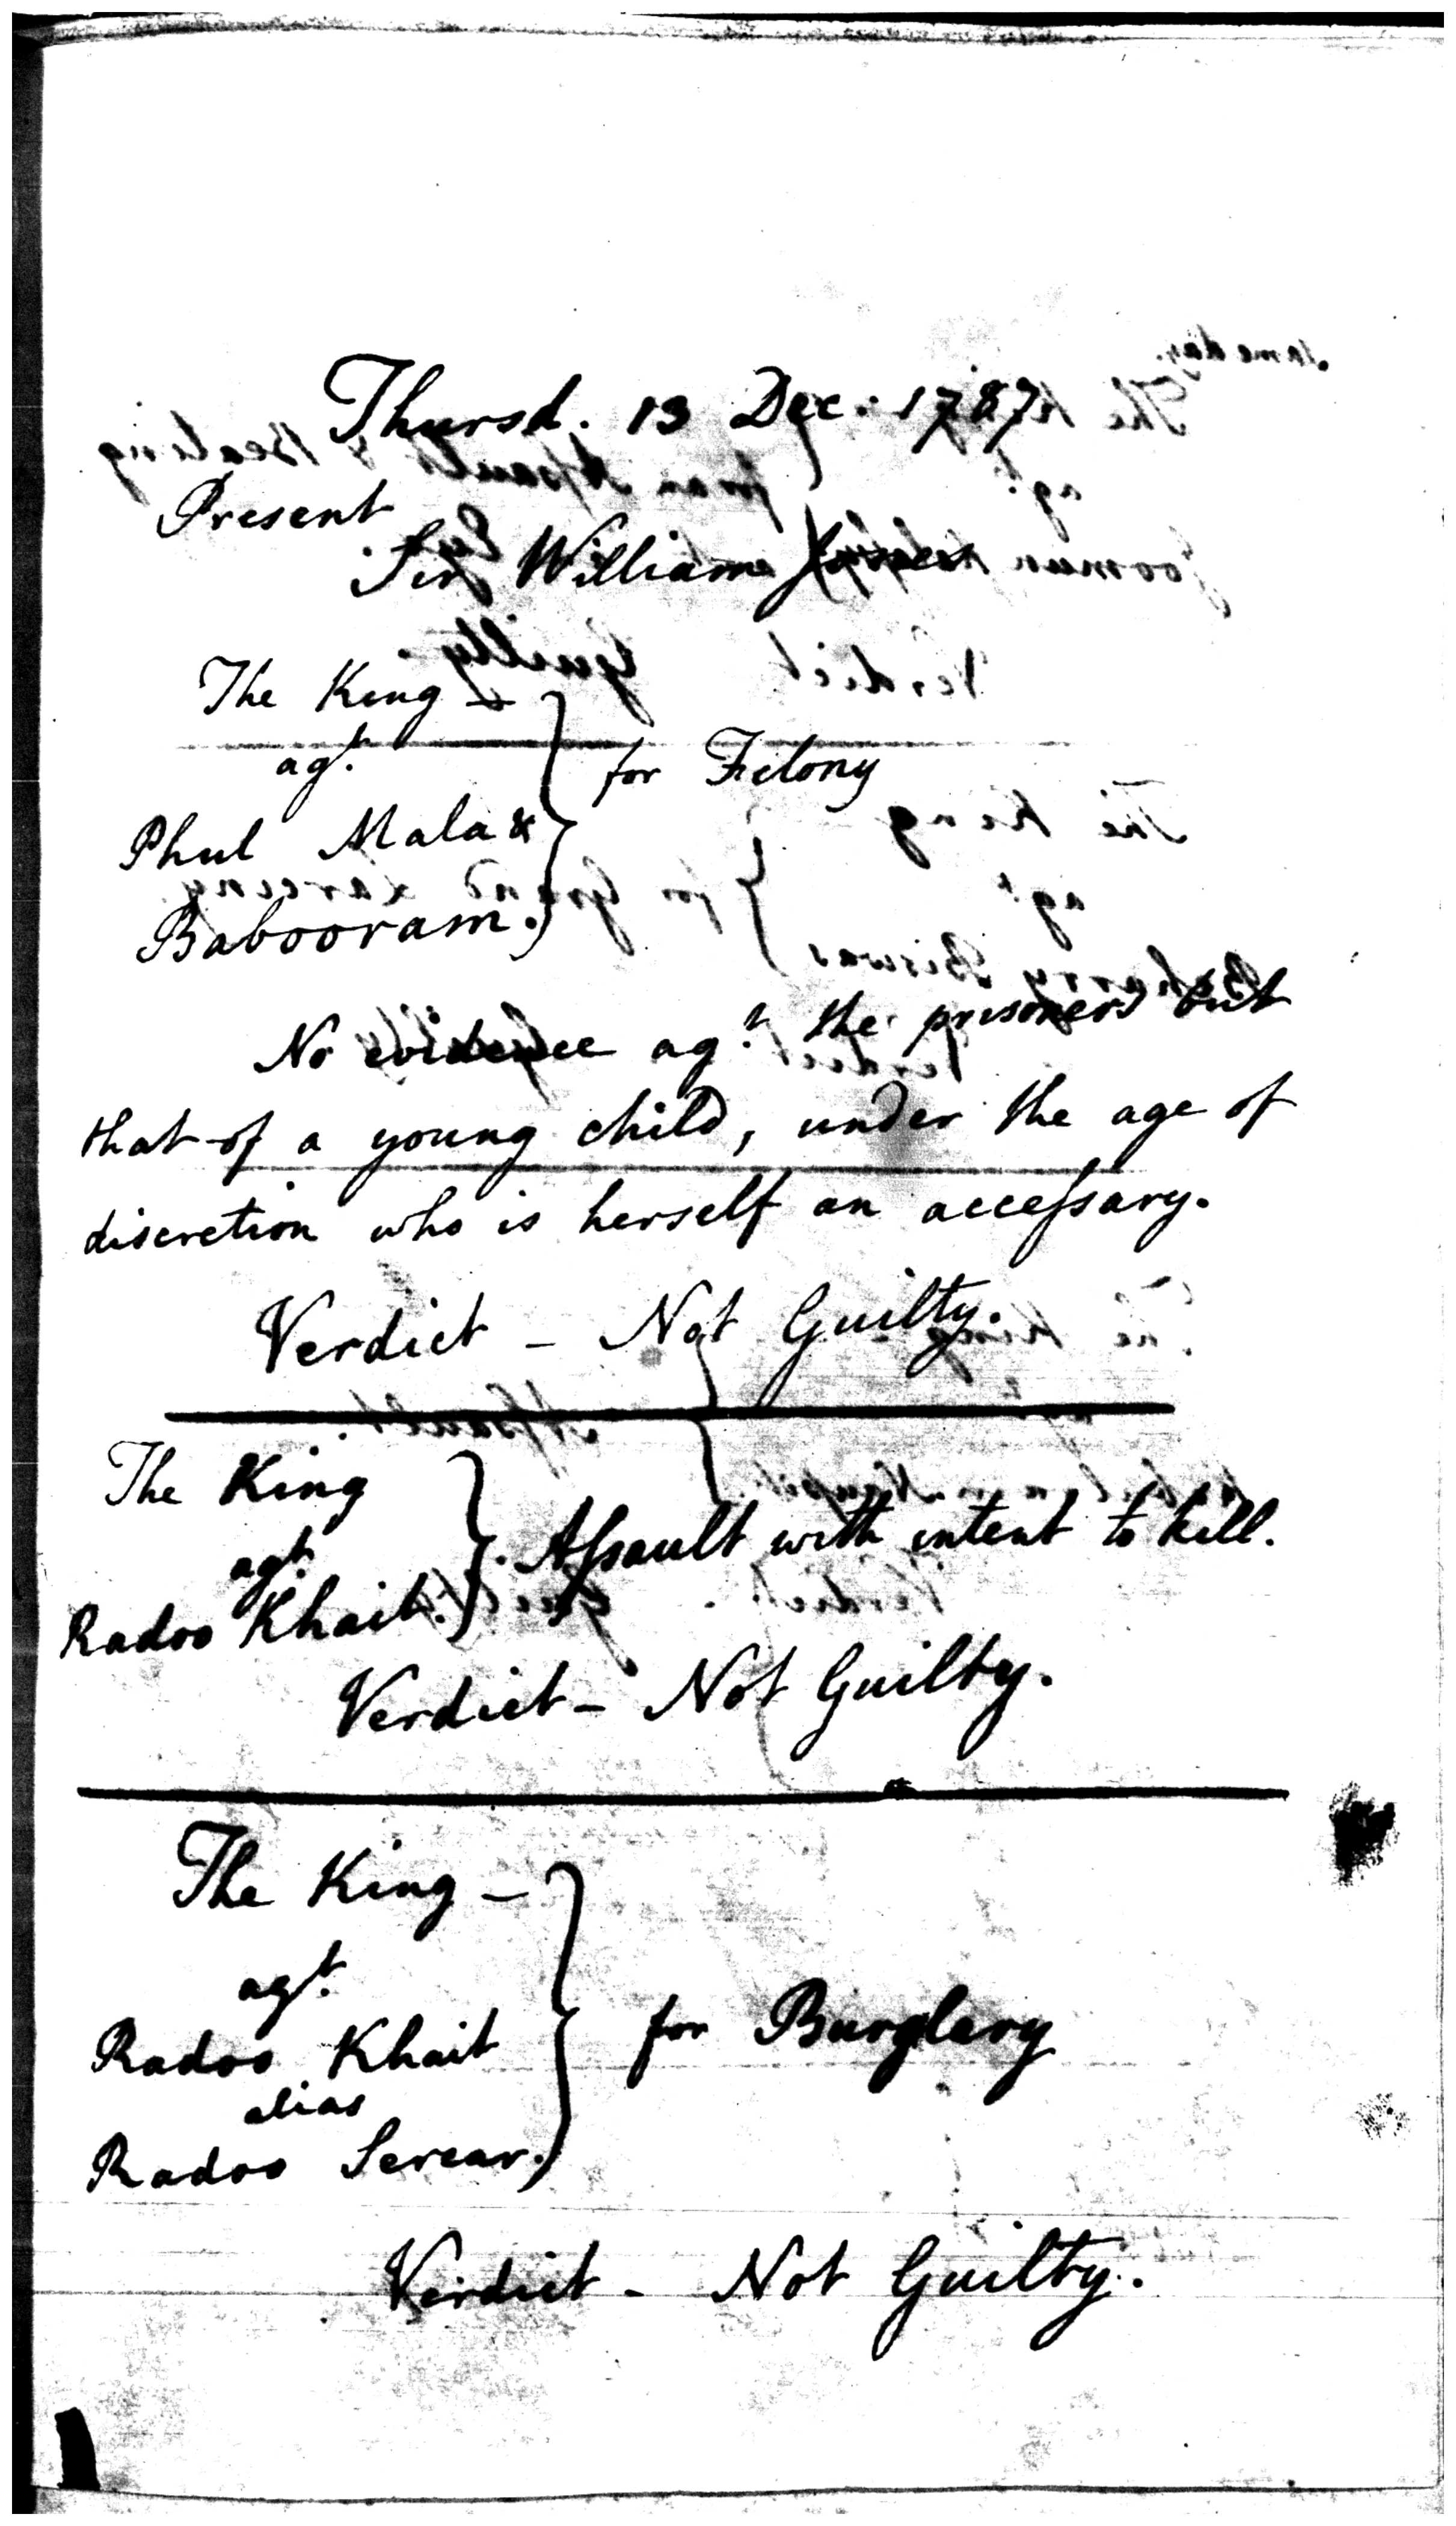 Thursd. 13 Dec. 1787
Present
Sir William Jones
The King –
agt.
for Felony
Phul Mala &
Babooram.
No evidence agt. the prisoners but
that of a young child, under the age of
discretion who is herself an accessary.
Verdict – Not Guilty.
The King
agt.
Assault with intent to kill.
Radoo Khait.
Verdict – Not Guilty.
The King –
agt.
Radoo Khait
for Burglary
alias
Radoo Sercar.
Verdict – Not Guilty.